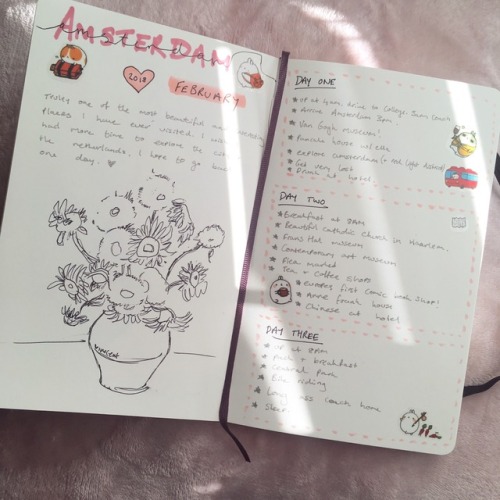 AMSTERDAM
Amsterdam
2018
FEBRUARY
Truly one of the most beautiful and interesting
places I have ever visited. I wish I
had more time to explore the
the netherlands. I hope to go back
one day.
Vincent
DAY ONE
up at 4am, drive to college, 5am coach
arrive Amsterdam 3pm.
Van Gogh museum!
Pancake house w/ Elle
explore amsterdam (+ red light district)
Get very lost
Drinks at hotel.
DAY TWO
Breakfast at 8am
Beautiful catholic church in Haarlem.
Frans Hal museum
Contemporary art museum
Flea market
Tea + coffee shops
Europes first comic book shop!
Anne frank house
Chinese at hotel
DAY THREE
up at 8am
Pack + breakfast
Central park
Bike riding
long ass coach home
sleep.